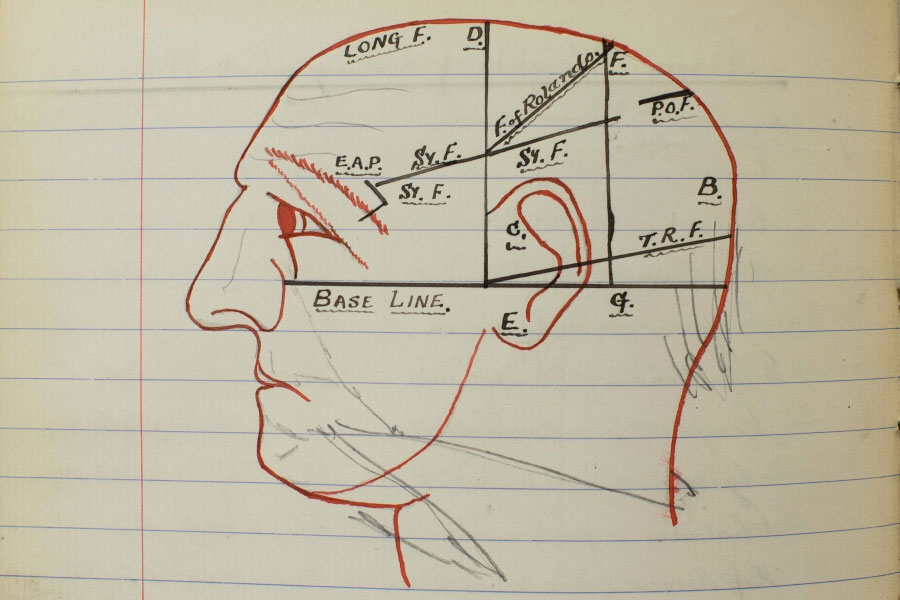 LONG F.
D.
F.
F. of Rolando.
P.O.F.
E.A.P.
Sy. F.
Sy. F.
Sy. F.
B.
C.
T. R. F.
BASE LINE.
G.
E.